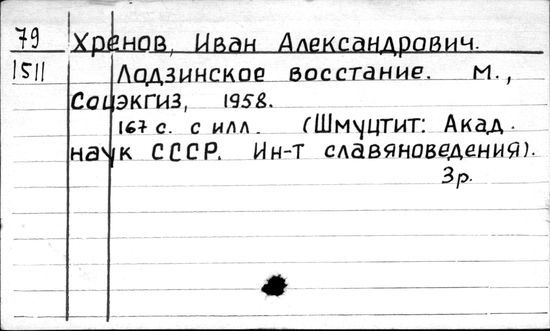 79 Хренов, Иван Александрович.
1511 Лодзинское восстание. М.,
Соцэкгиз, 1958.
167 с. с илл. (Шмуцтит: Акад.
наук СССР. Ин-т славяноведения).
3р.